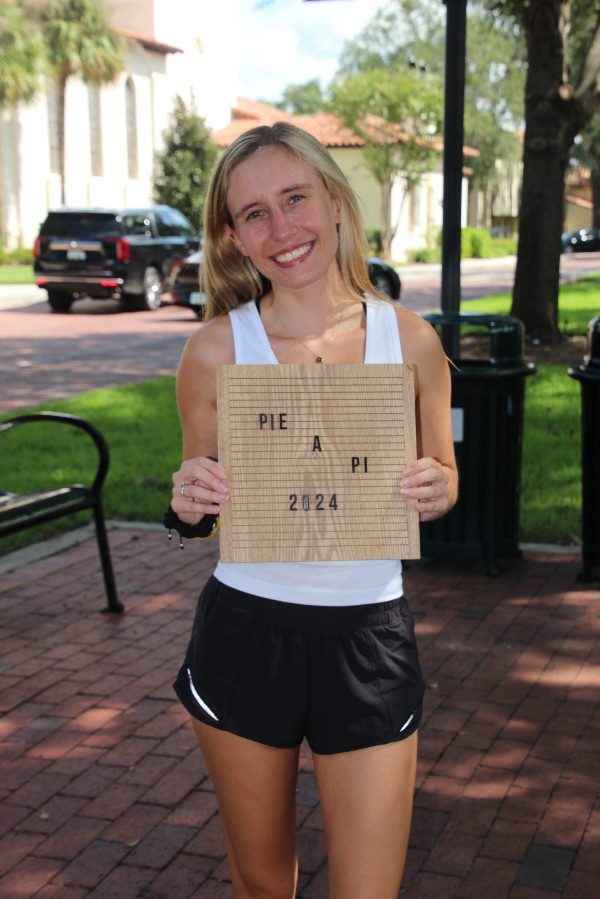 PIE
A
PI
2024